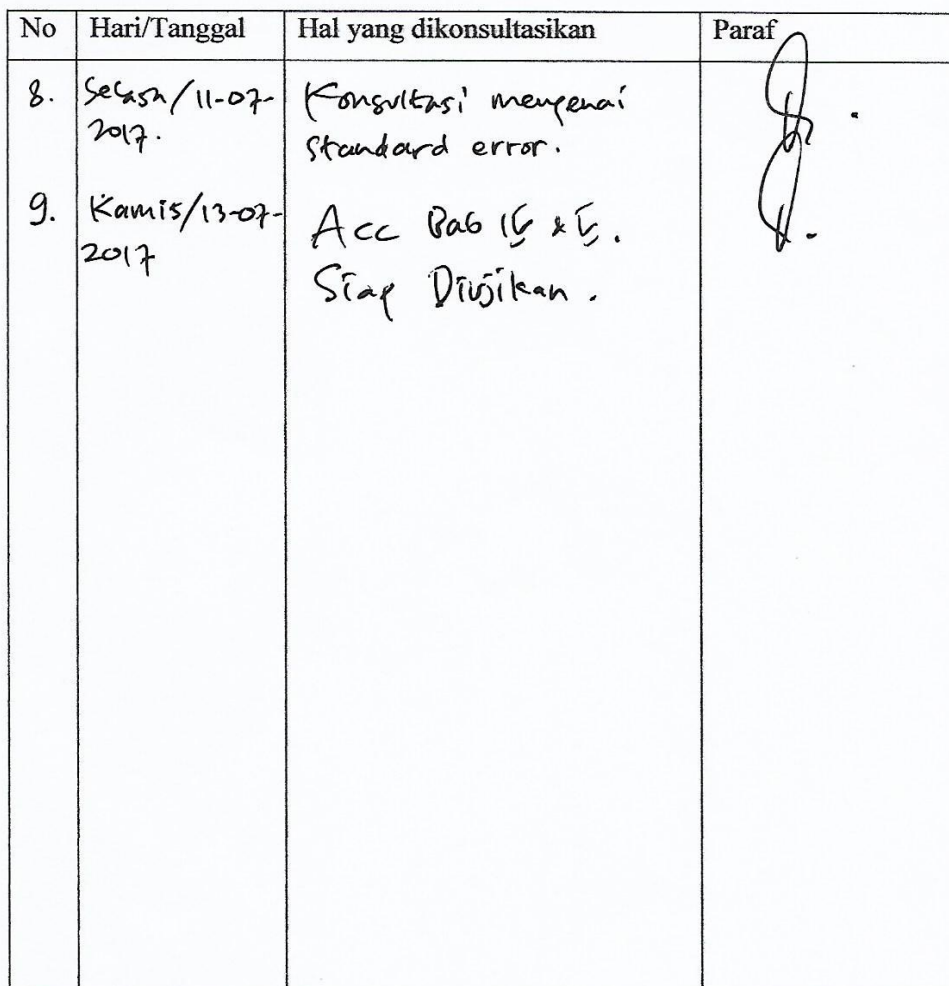 No Hari/Tanggal Hal yang dikonsultasikan Paraf
8. Selasa/11-07- Konsultasi mengenai
2017. standard error.
9. Kamis/13-07- Acc Bab IV & V.
2017 Siap Diujikan.